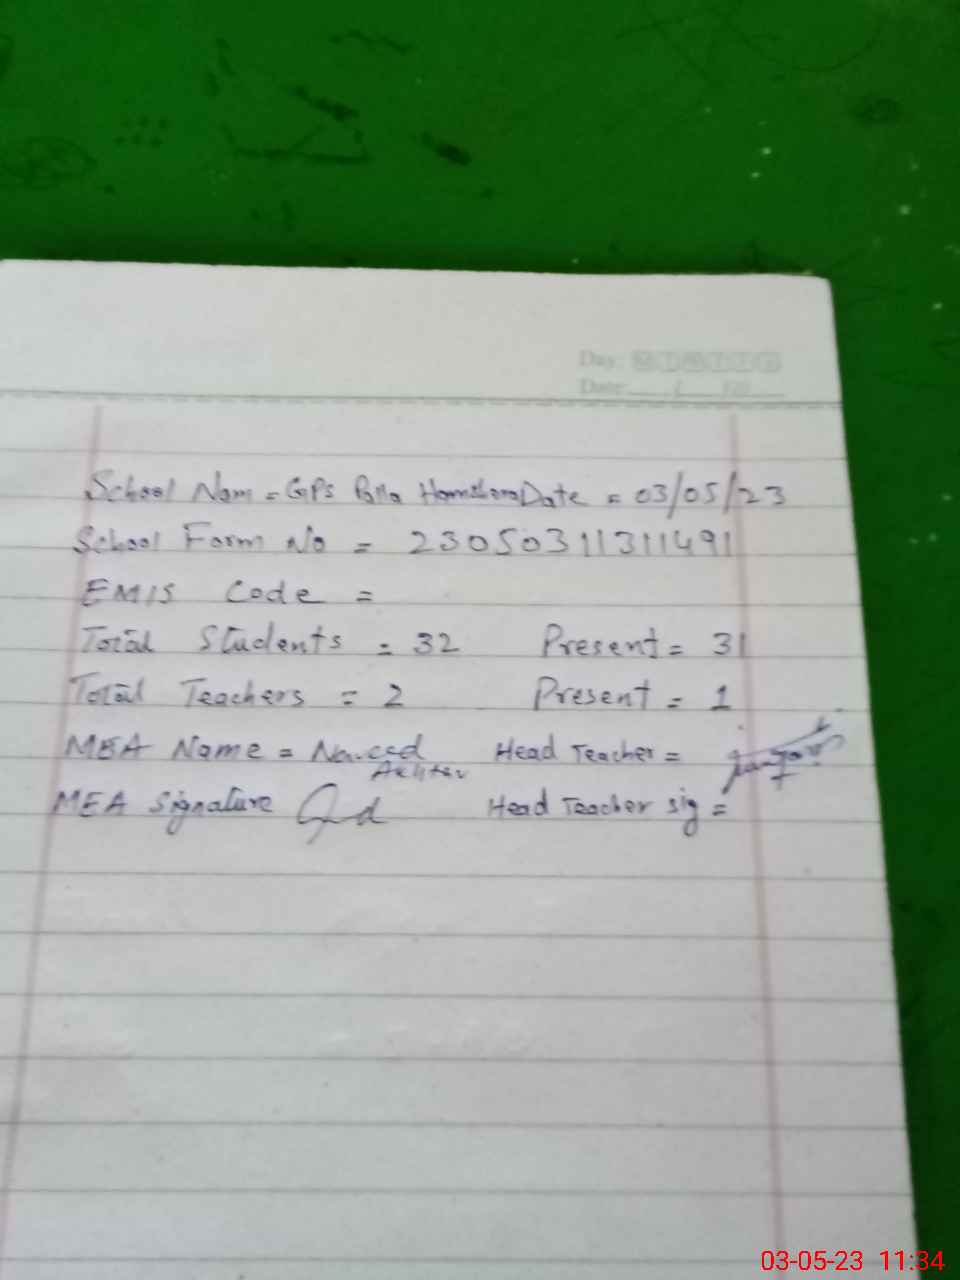 Day: M T W T F S
Date:
School Nam = GPS Palla Date = 03/05/23
School Form No = 23050311311491
EMIS Code =
Total Students = 32 Present = 31
Total Teachers = 2 Present = 1
MEA Name = Naveed Head Teacher =
MEA Signature Head Teacher sig =
03-05-23 11:34